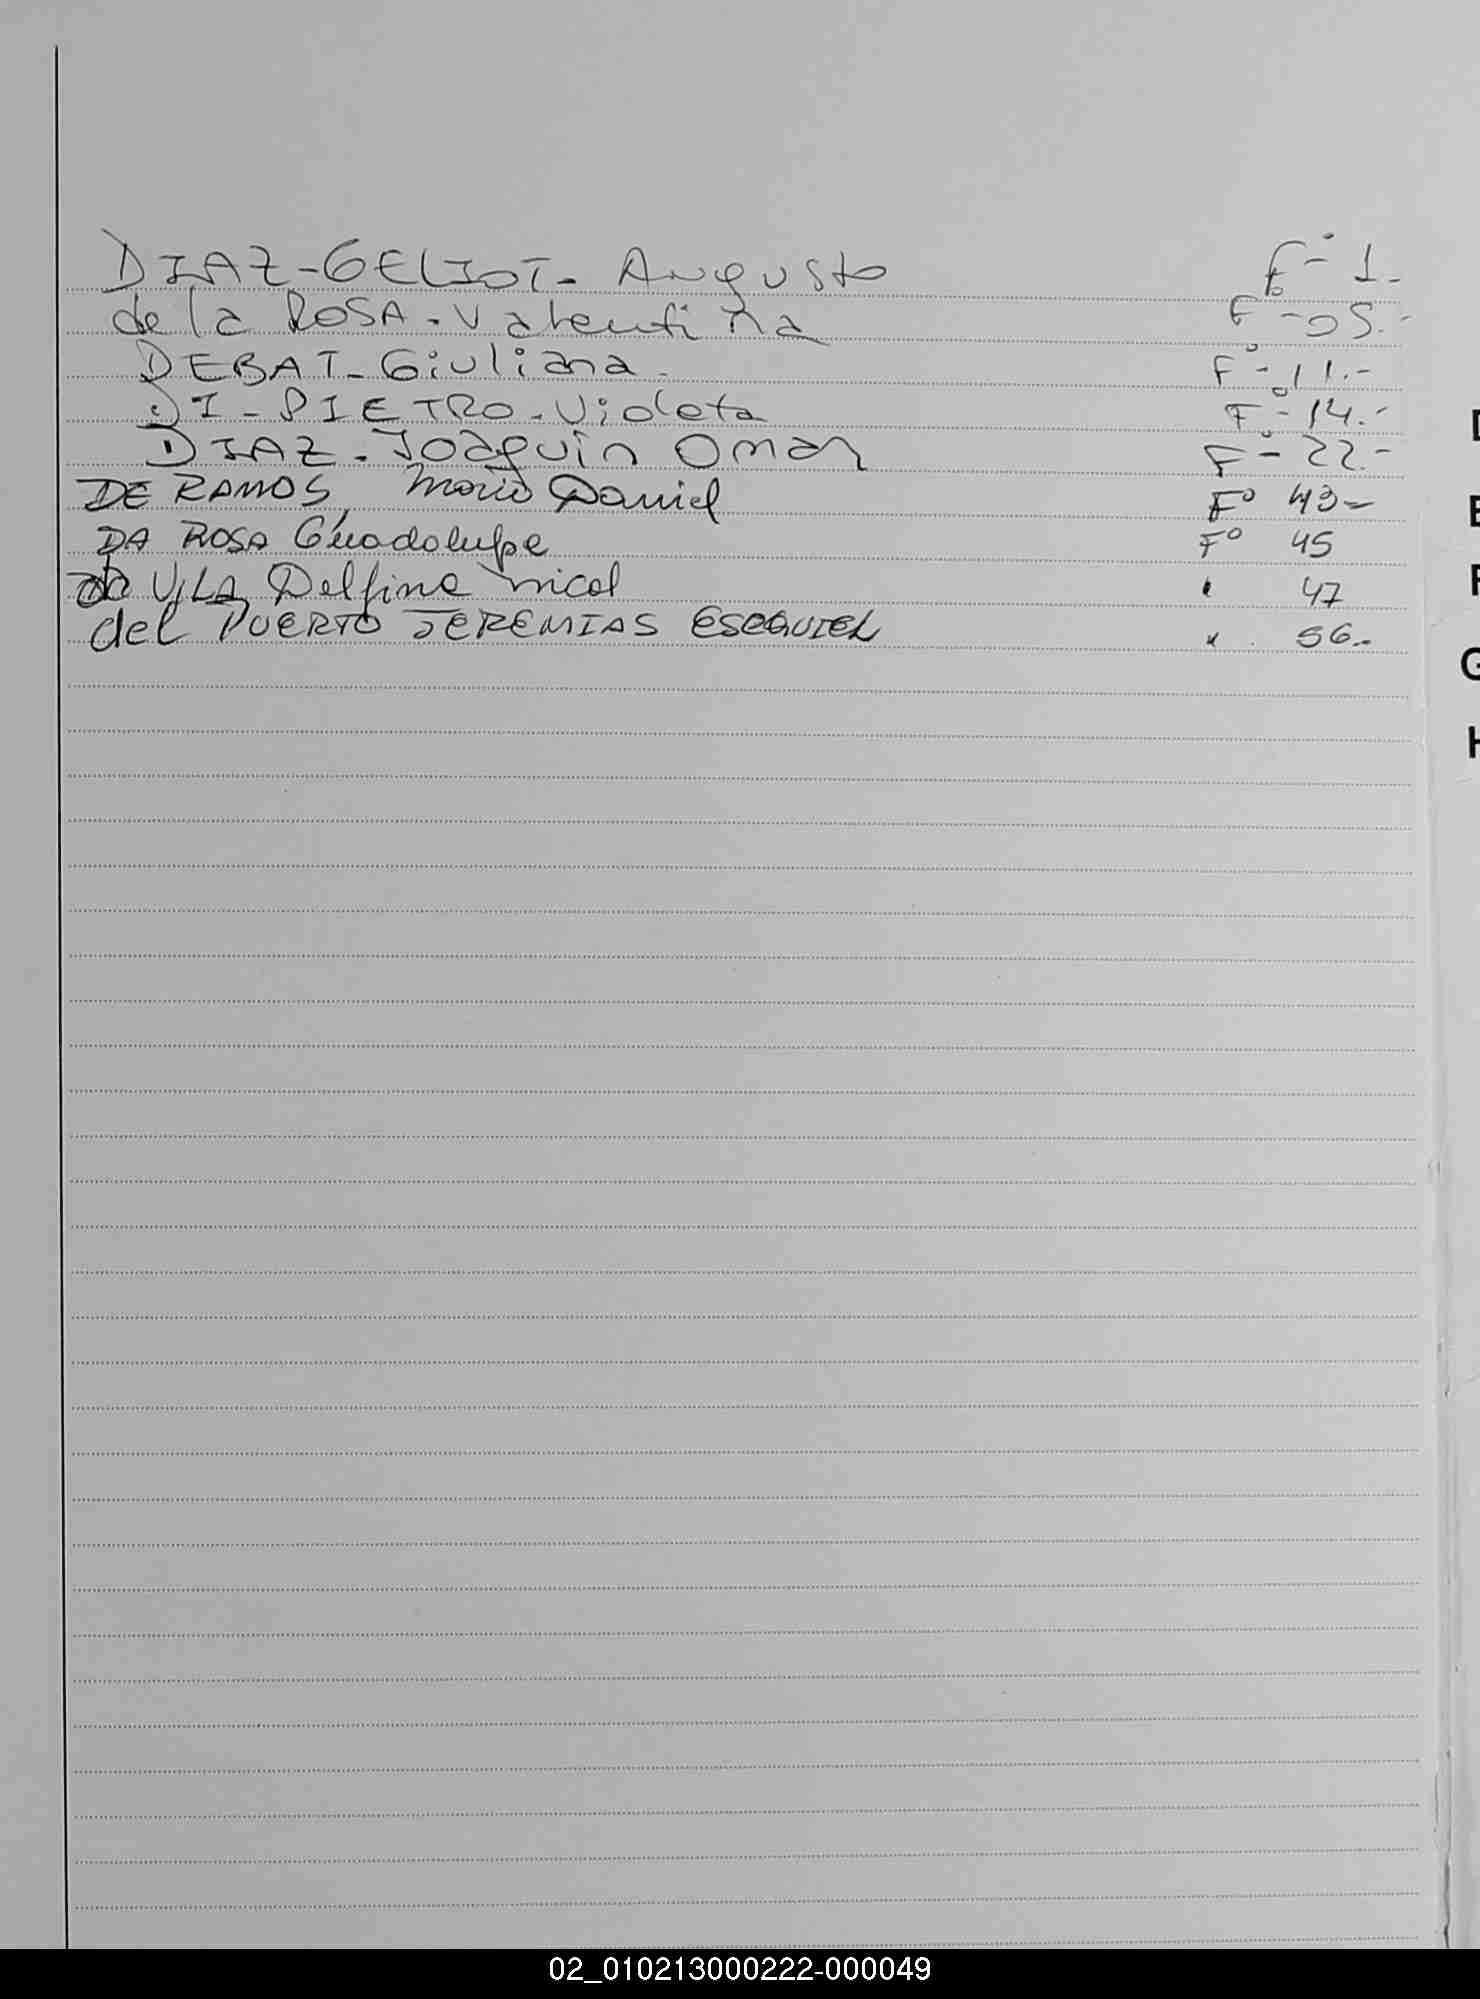 DIAZ-GELIOT- Augusto F°- 1.-
de la ROSA.Valentina F°-05.-
DEBAT-Giuliana.- F°-11.-
DI-PIETRO-Violeta F°-14.-
DIAZ-Joaquin Omar F°-22.-
DE RAMOS, Mario Daniel F° 43-
DA ROSA Guadalupe F° 45
VILA Delfina nicol " 47
del PUERTO JEREMIAS ESEQUIEL " 56.-
D
E
F
G
H
02_010213000222-000049